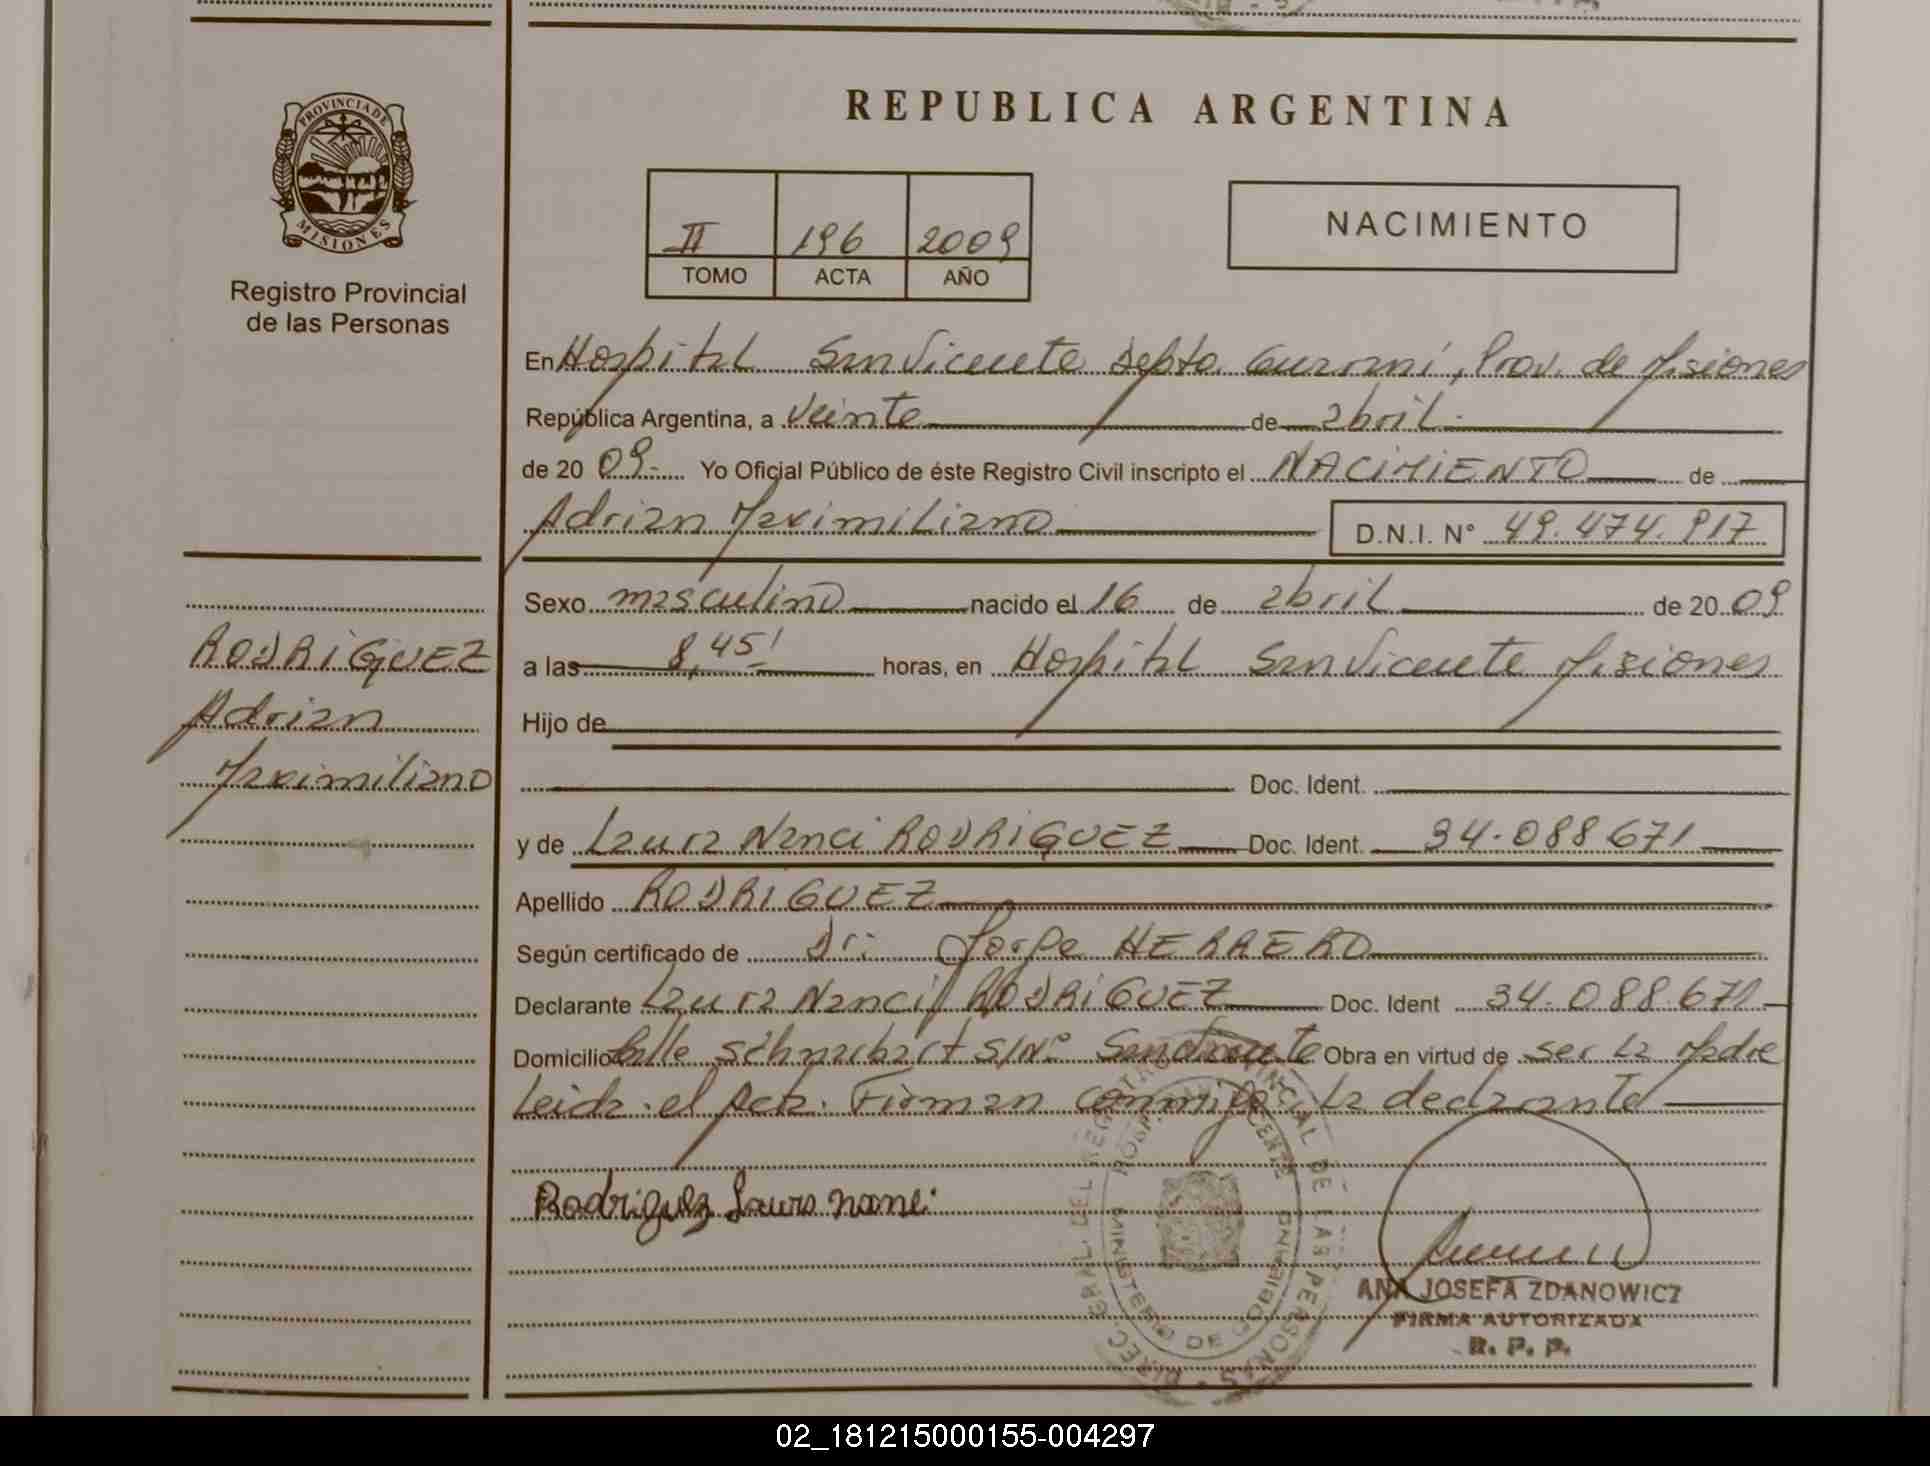 REPUBLICA ARGENTINA
PROVINCIA DE MISIONES
Registro Provincial
de las Personas
II 196 2009
TOMO ACTA AÑO
NACIMIENTO
En Hospital San Vicente Depto. Guaraní, Prov. de Misiones
República Argentina, a veinte de abril
de 20 09 Yo Oficial Público de éste Registro Civil inscripto el NACIMIENTO de
Adrian Maximiliano D.N.I. N° 49.474.917
Sexo masculino nacido el 16 de abril de 20 09
a las 8,45' horas, en Hospital San Vicente Misiones
Hijo de
Doc. Ident.
y de Laura Nanci RODRIGUEZ Doc. Ident. 34.088.671
Apellido RODRIGUEZ
Según certificado de Dr: Jorge HERRERO
Declarante Laura Nanci RODRIGUEZ Doc. Ident 34.088.671
Domicilio Calle S/N° San Vicente Obra en virtud de ser la Madre
Leida el Acta. Firman conmigo La declarante
RODRIGUEZ
Adrian
Maximiliano
Rodriguez Laura nanci
DIREC. GRAL. DEL REGISTRO PROVINCIAL DE LAS PERSONAS
MINISTERIO DE GOBIERNO
ANA JOSEFA ZDANOWICZ
FIRMA AUTORIZADA
R. P. P.
02_181215000155-004297